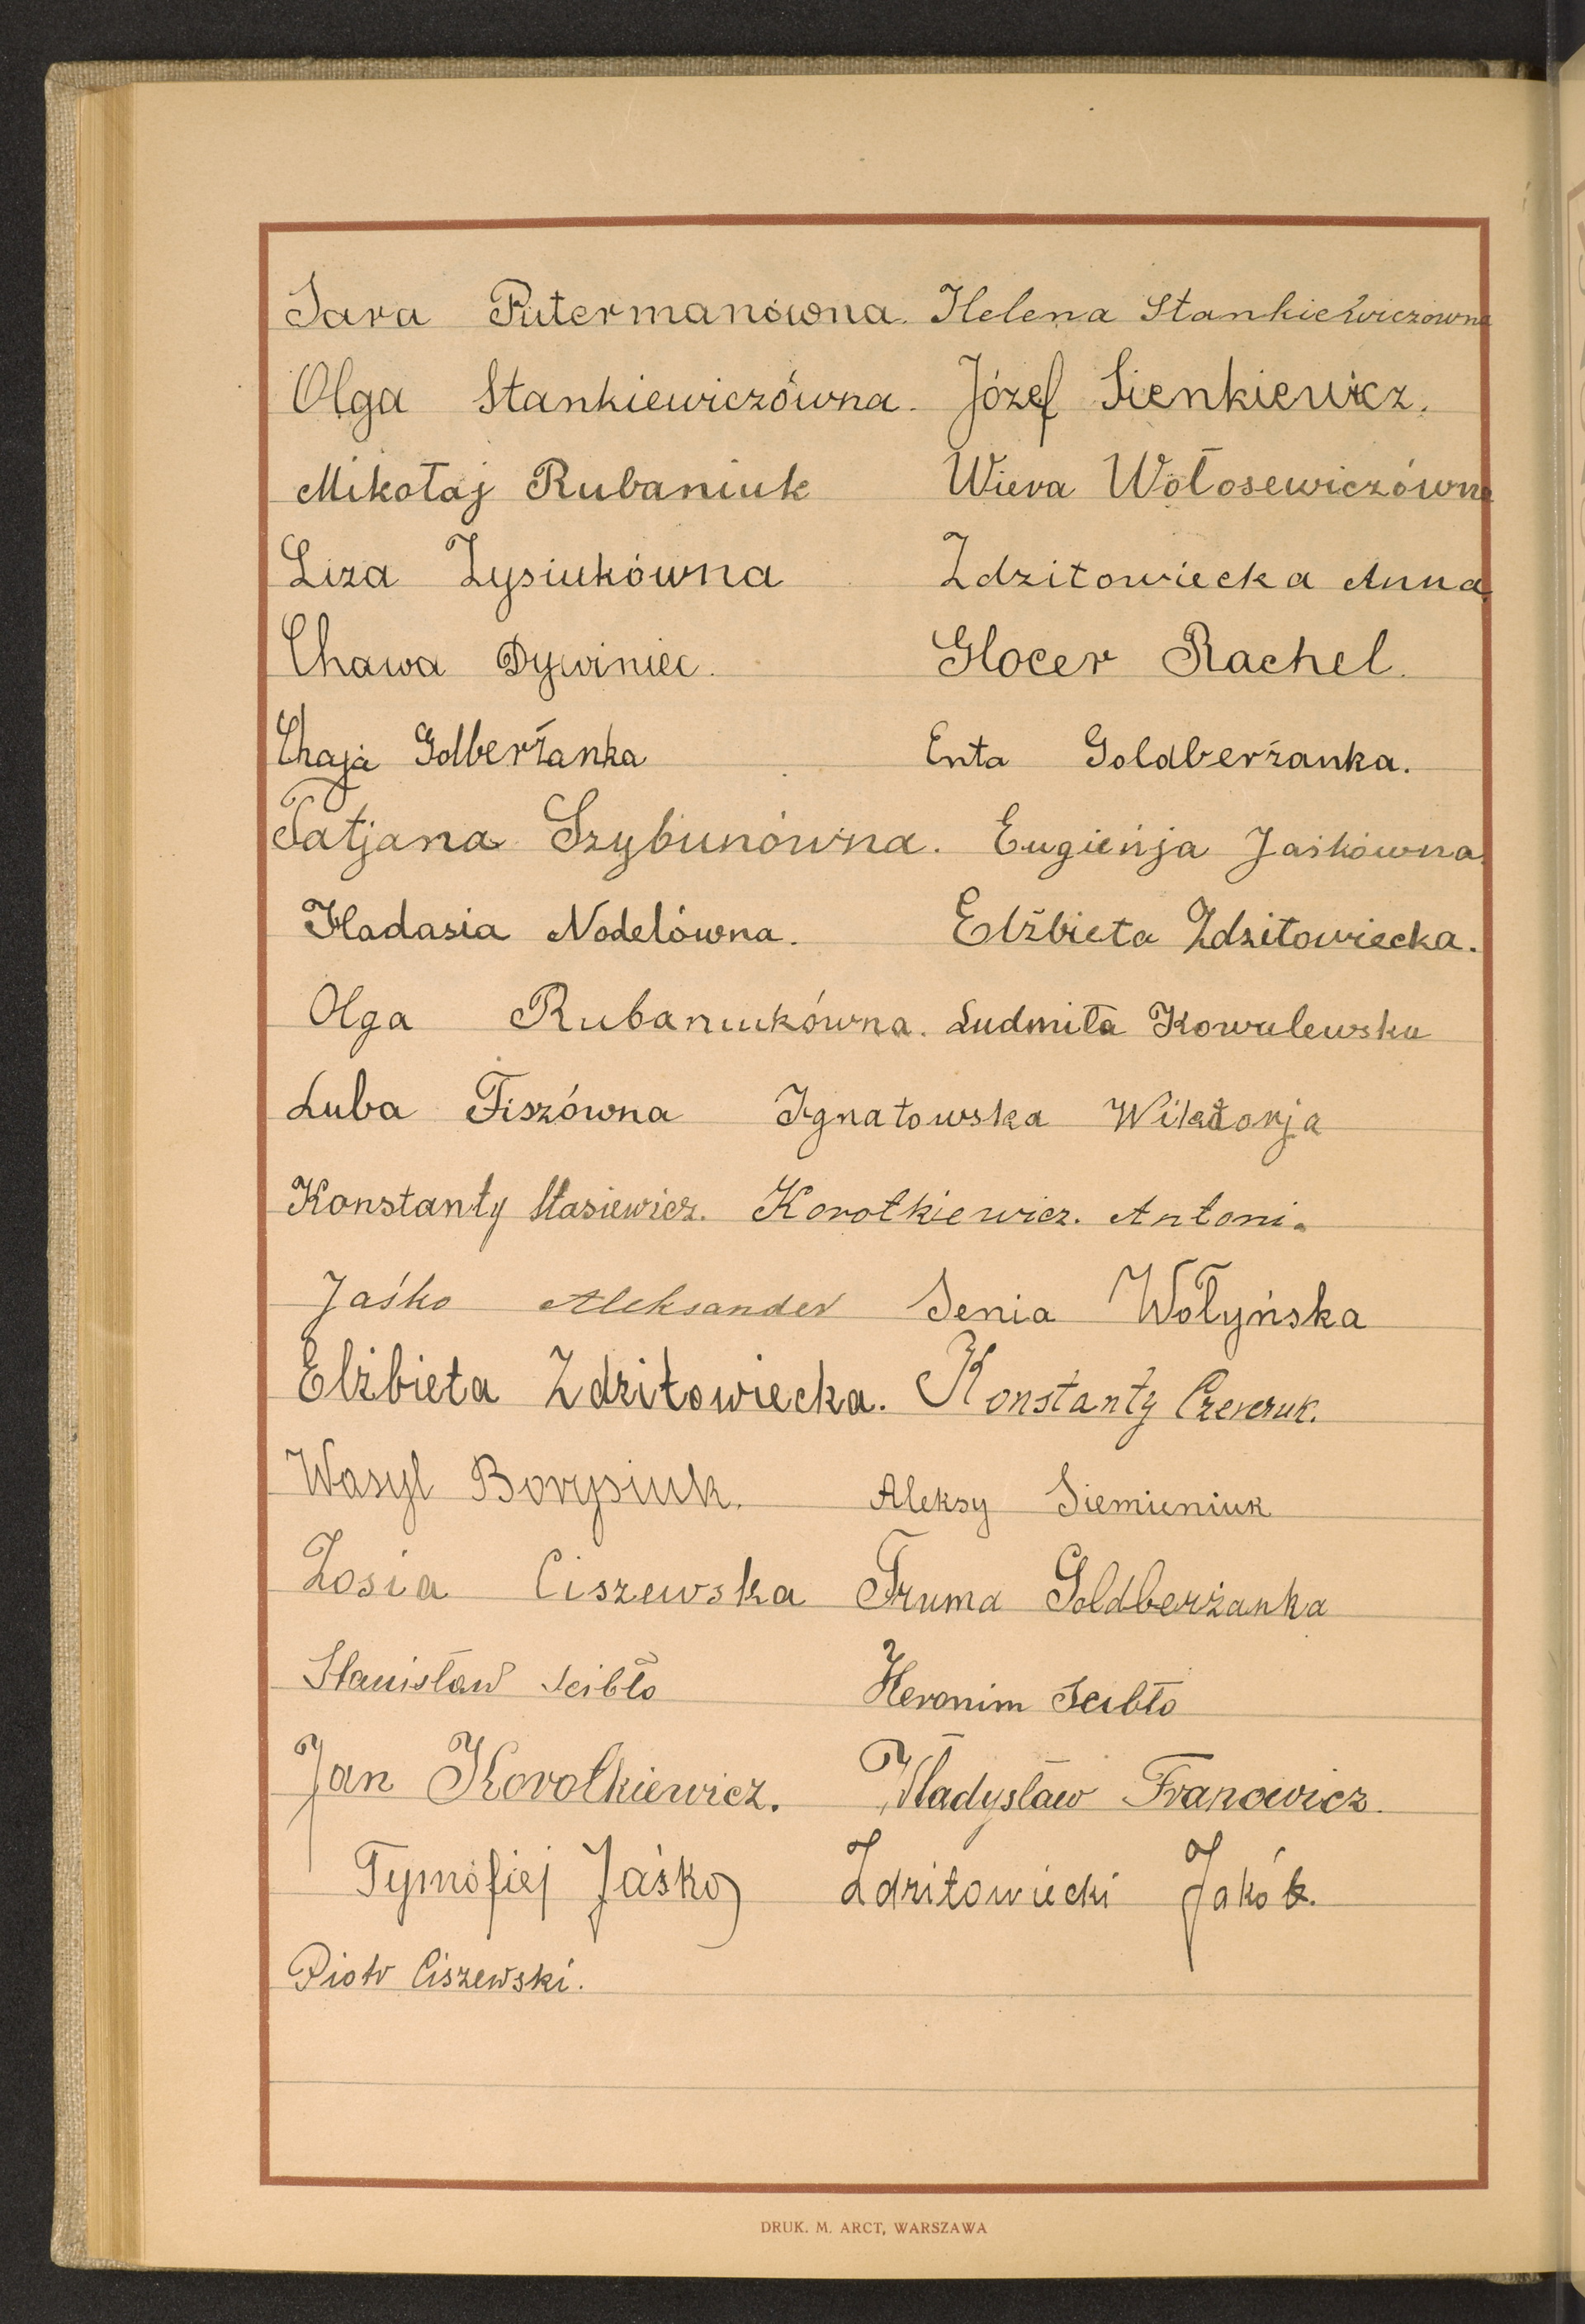 Sara Putermanówna. Helena Stankiewiczówna
Olga Stankiewiczówna. Józef Sienkiewicz.
Mikołaj Rubaniuk Wiera Wołosewiczówna
Liza Zysiukówna Zdzitowiecka Anna.
Chawa Dywiniec. Glocer Rachel.
Chaja Golberżanka Enta Goldberżanka.
Tatjana Szybunówna. Eugieńja Jaśkówna.
Hadasia Nodelówna. Elżbieta Zdzitowiecka.
Olga Rubaniukówna. Ludmiła Kowalewska
Luba Fiszówna Ignatowska Wiktorja
Konstanty Stasiewicz. Korotkiewicz. Antoni.
Jaśko Aleksander Senia Wołyńska
Elżbieta Zdzitowiecka. Konstanty
Wasyl Borysiuk. Aleksy Siemieniuk
Zosia Ciszewska Fruma Goldberżanka
Stanisław Scibło Heronim Scibło
Jan Korotkiewicz. Władysław Franowicz.
Tymofiej Jaśko Zdzitowiecki Jakób.
Piotr Ciszewski.
DRUK. M. ARCT, WARSZAWA